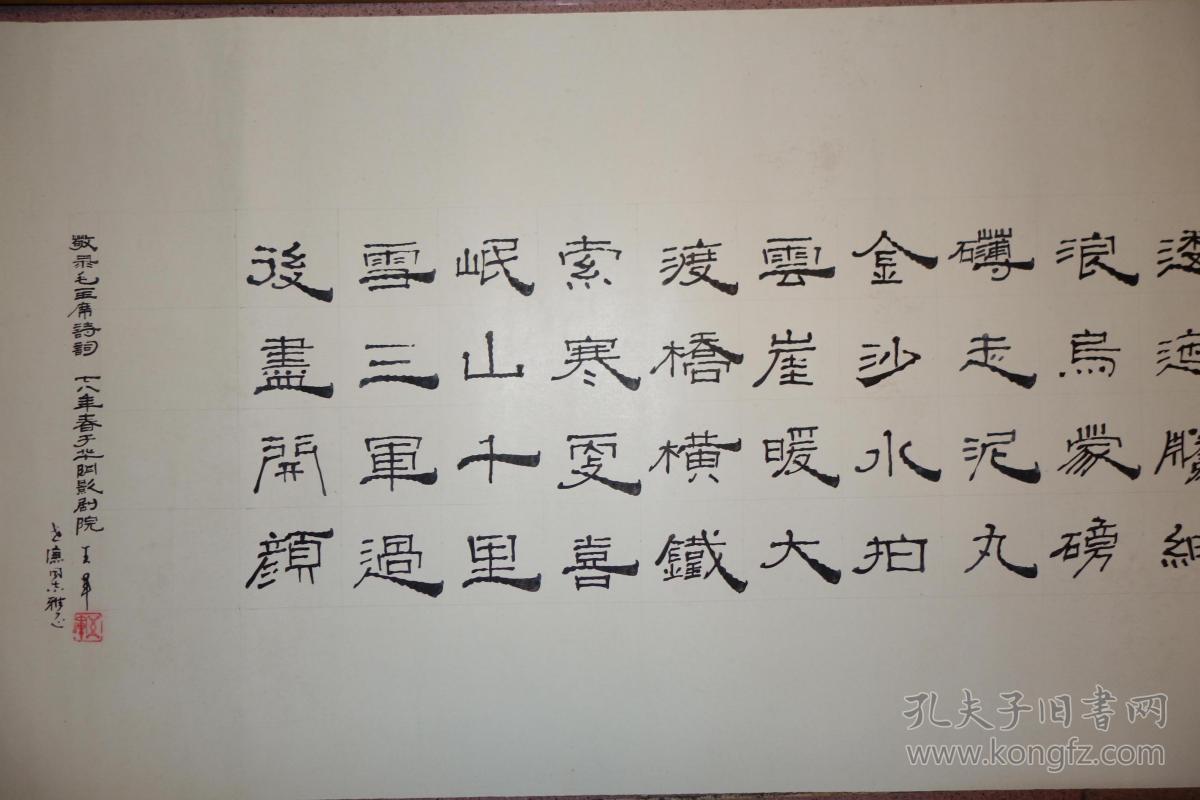 逶迤騰細
浪烏蒙磅
礴走泥丸
金沙水拍
雲崖暖大
渡橋横鐵
索寒更喜
岷山千里
雪三軍過
後盡開顔
敬录毛主席詩詞 七八年春于华影剧院
同志雅正
孔夫子旧書网
www.kongfz.com